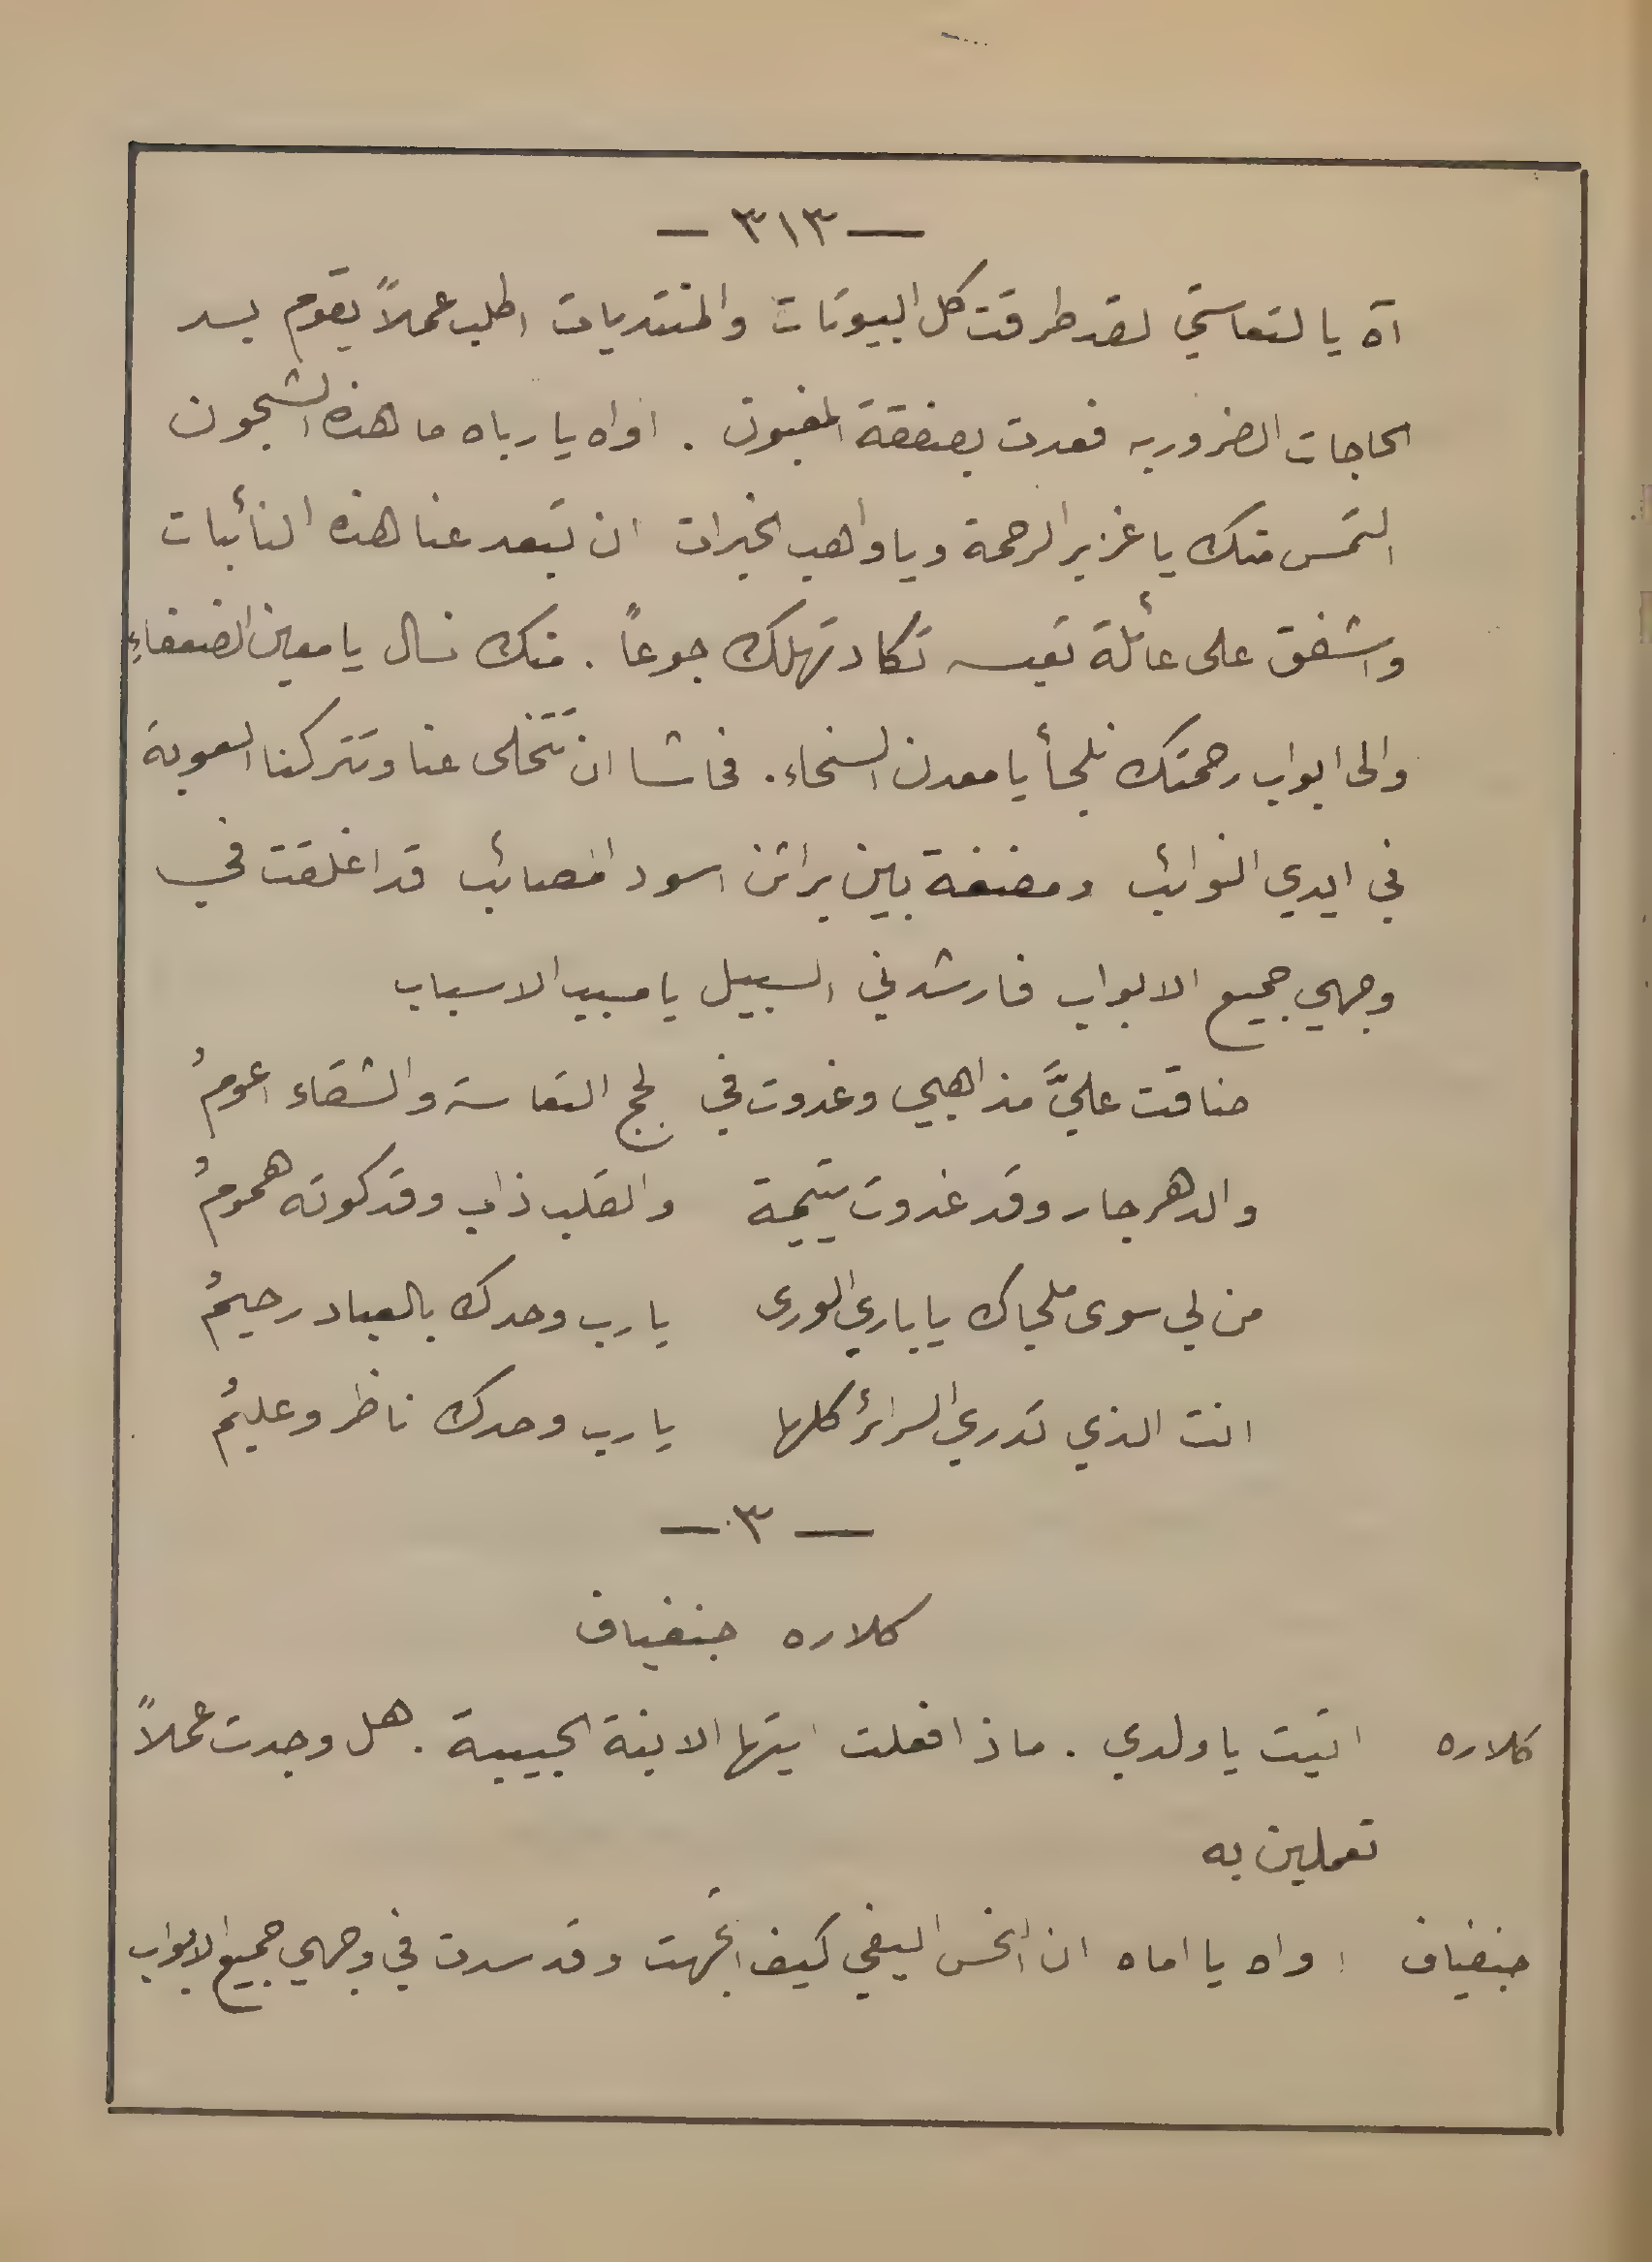 — ٣١٣ —
آه يا لتعاستي لقد طرقت كل البيوتات والمنتديات اطلب عملاً يقوم بسد
الحاجات الضروريه فعدت بصفقة المغبون . اواه يا رباه ما هذه الشجون
التمس منك يا غزير الرحمة ويا واهب الخيرات ان تبعد عنا هذه النائبات
واشفق على عائلة تعيسه تكاد تهلك جوعاً . منك نسال يا معين الضعفاءِ
والى ابواب رحمتك نلجأ يا معدن السخاء . فحاشا ان تتخلى عنا وتتركنا العوبة
في ايدي النوائب ومضغة بين براثن اسود المصائب قد اغلقت في
وجهي جميع الابواب فارشدني السبيل يا مسبب الاسباب
ضاقت عليَّ مذاهبي وغدوت في لجج التعاسة والشقاء اعومُ
والدهر جار وقد غدوت يتيمة والقلب ذاب وقد كوته همومُ
من لي سوى ملجاك يا باري الورى يا رب وحدك بالعباد رحيمُ
انت الذي تدري السرائر كلها يا رب وحدك ناظر وعليمُ
— ٣ —
كلاره جنفياف
كلاره اتيت يا ولدي . ماذا فعلت ايتها الابنة الحبيبة . هل وجدت عملاً
تعملين به
جنفياف اواه يا اماه ان النحس اليفي كيف اتجهت وقد سدت في وجهي جميع الابواب